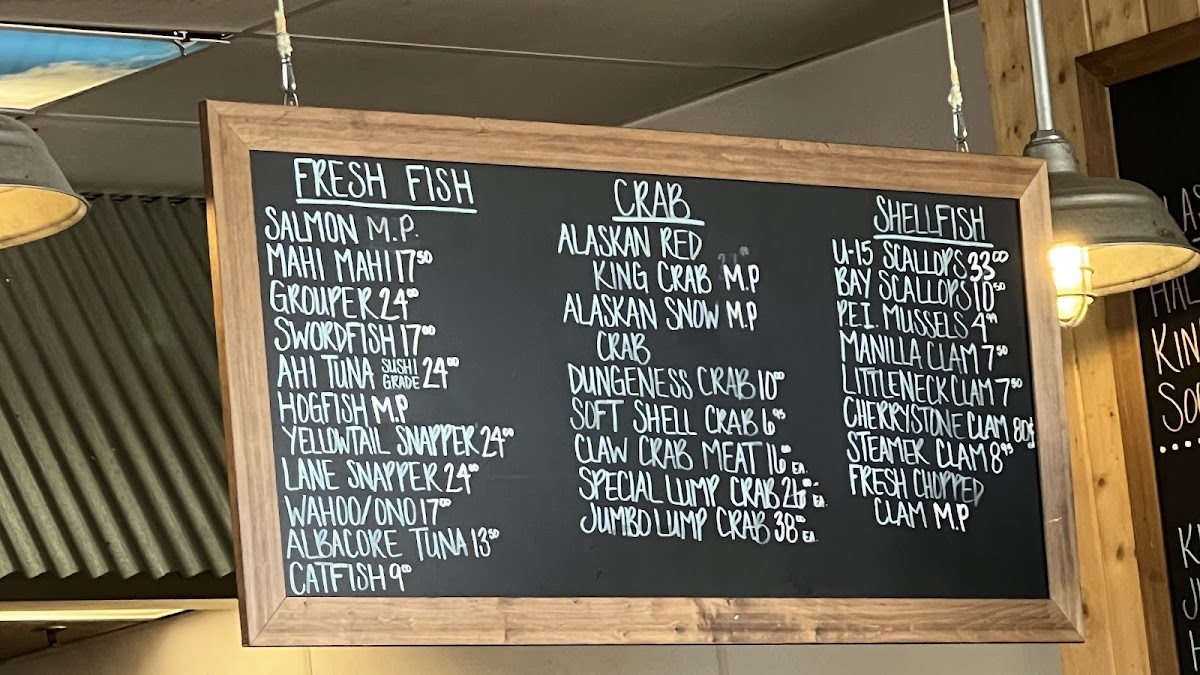 FRESH FISH
SALMON M.P.
MAHI MAHI 17⁵⁰
GROUPER 24⁰⁰
SWORDFISH 17⁰⁰
AHI TUNA SUSHI GRADE 24⁰⁰
HOGFISH M.P
YELLOWTAIL SNAPPER 24⁰⁰
LANE SNAPPER 24⁰⁰
WAHOO/ONO 17⁰⁰
ALBACORE TUNA 13⁵⁰
CATFISH 9⁰⁰
CRAB
ALASKAN RED
KING CRAB M.P
ALASKAN SNOW M.P
CRAB
DUNGENESS CRAB 10⁰⁰
SOFT SHELL CRAB 6⁹⁵
CLAW CRAB MEAT 16⁰⁰ EA.
SPECIAL LUMP CRAB EA.
JUMBO LUMP CRAB 38⁰⁰ EA.
SHELLFISH
U-15 SCALLOPS 33⁰⁰
BAY SCALLOPS 10⁵⁰
P.E.I. MUSSELS 4⁹⁹
MANILLA CLAM 7⁵⁰
LITTLENECK CLAM 7⁵⁰
CHERRYSTONE CLAM 80¢
STEAMER CLAM 8⁹⁵
FRESH CHOPPED
CLAM M.P